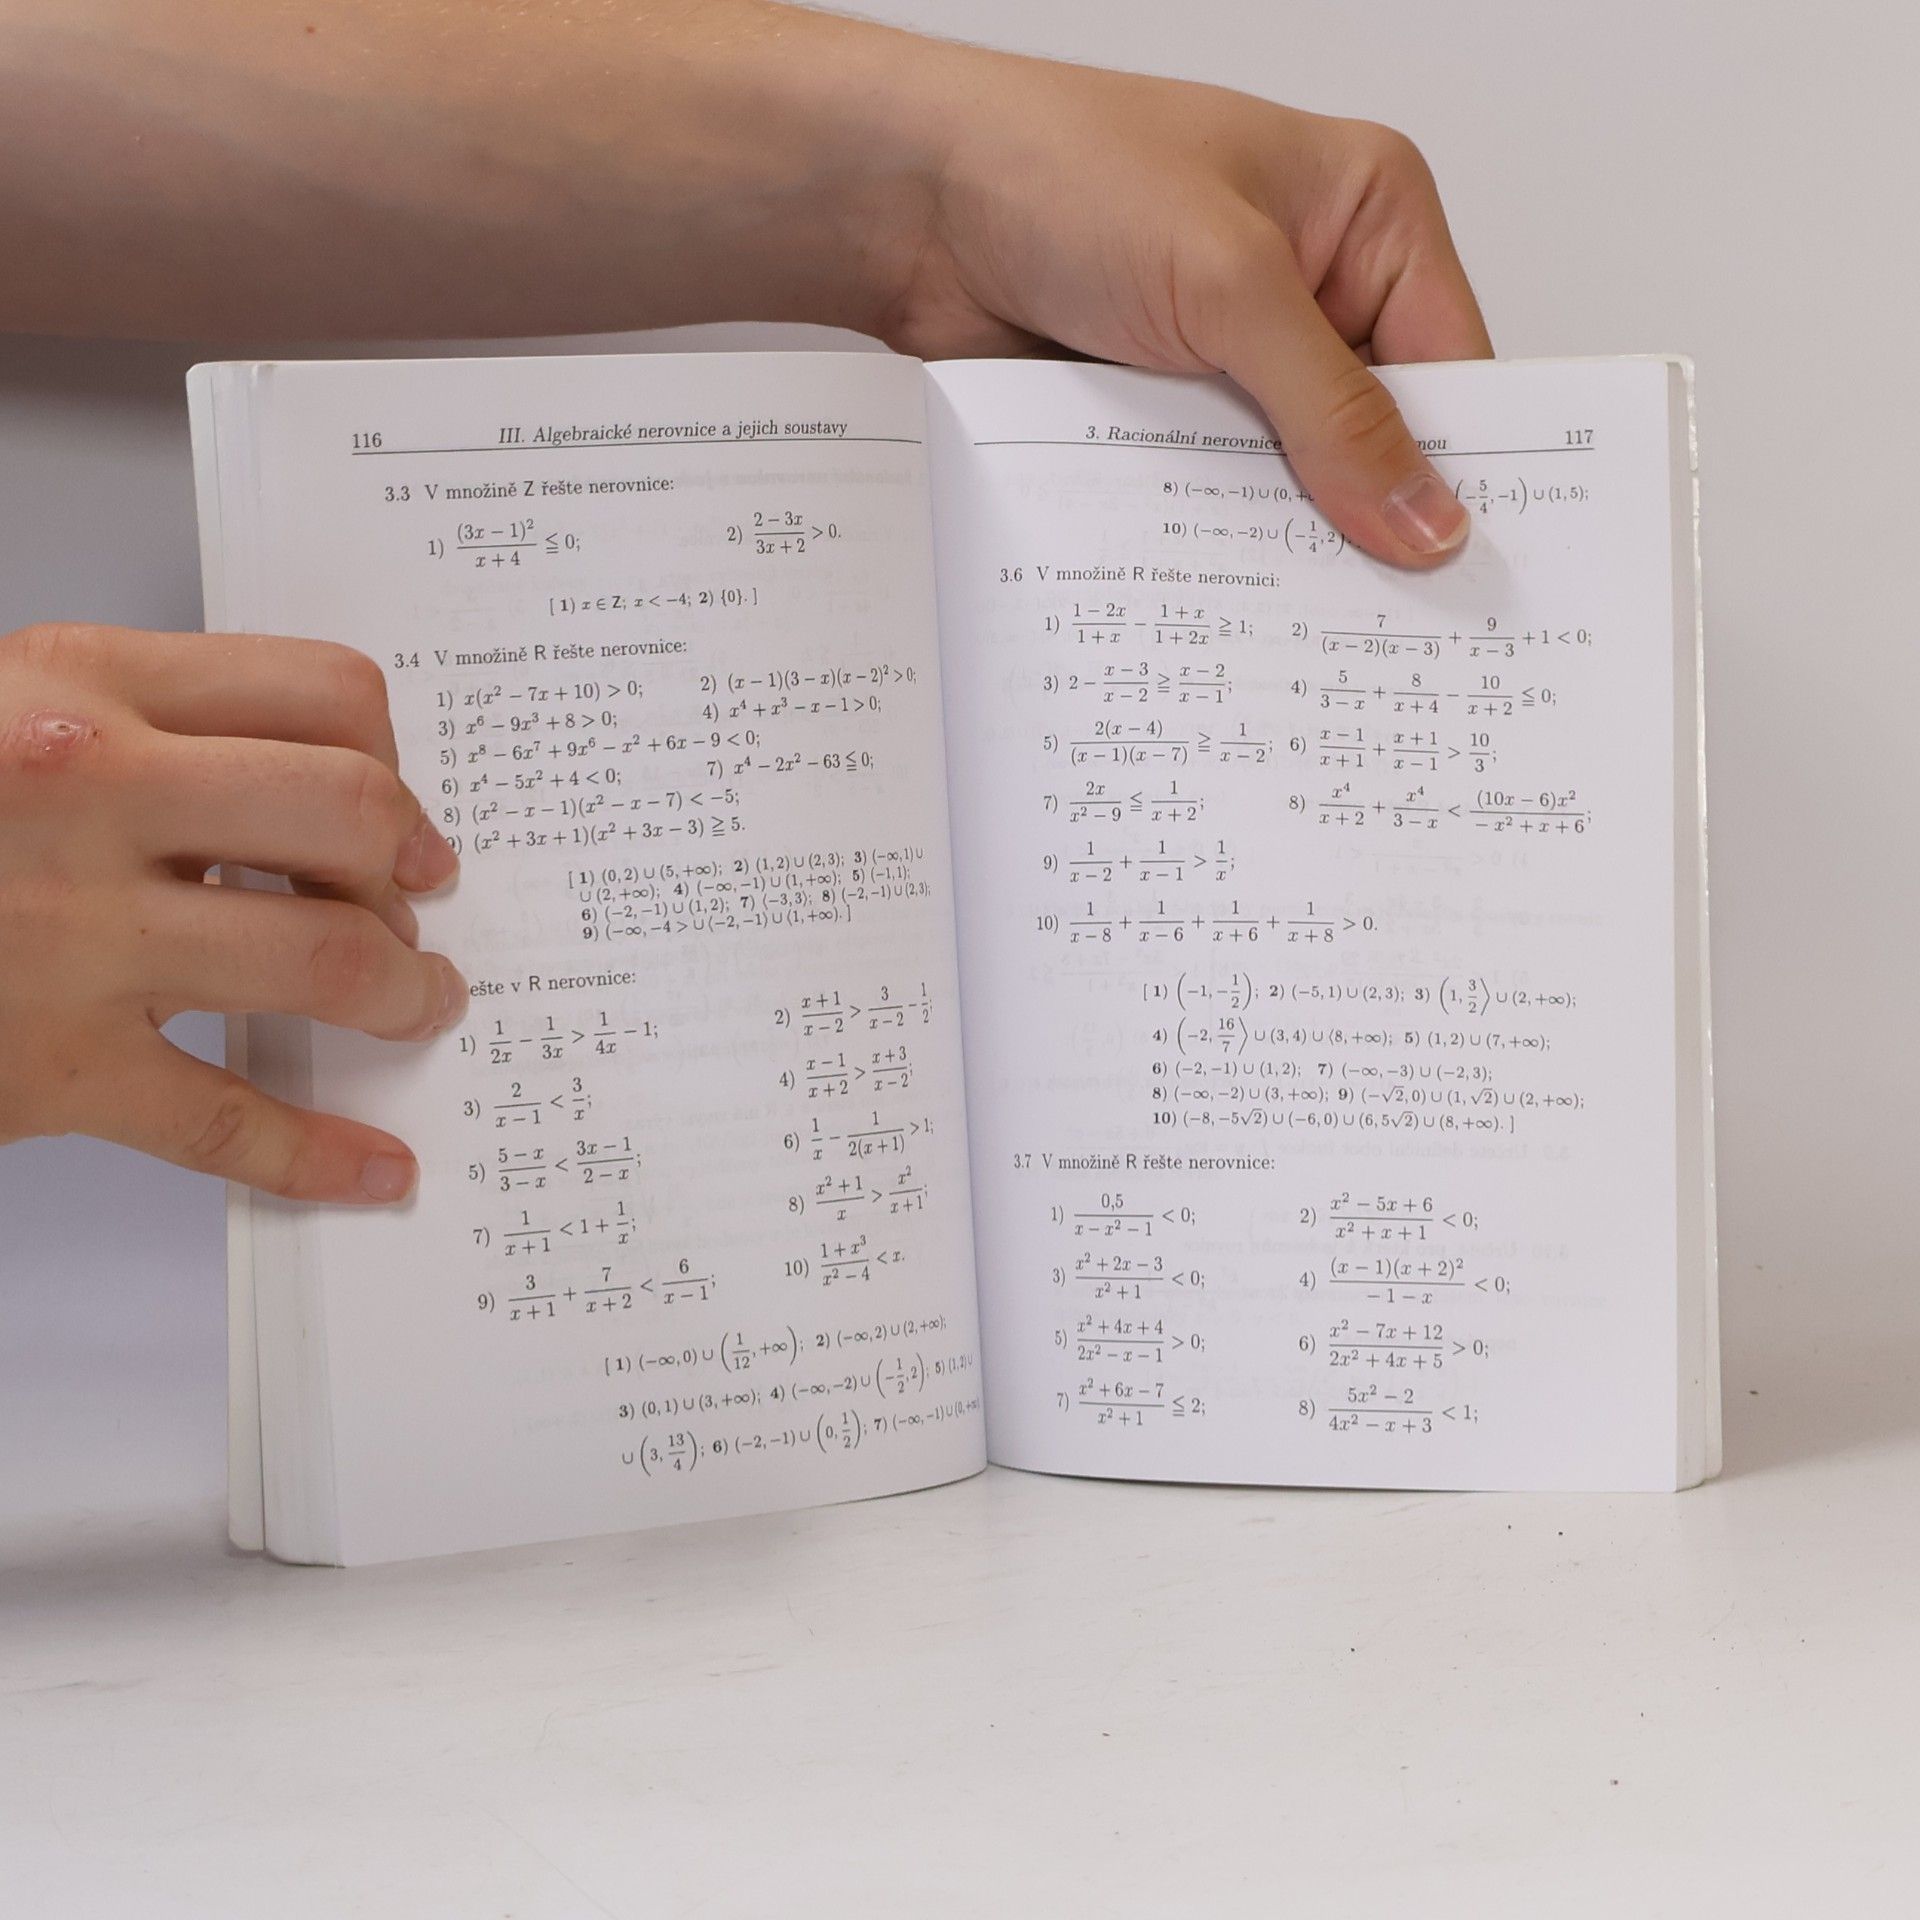 116 III. Algebraické nerovnice a jejich soustavy
3.3 V množině Z řešte nerovnice:
1) (3x − 1)²/(x + 4) ≦ 0; 2) (2 − 3x)/(3x + 2) > 0.
[ 1) x ∈ Z; x < −4; 2) {0}. ]
3.4 V množině R řešte nerovnice:
1) x(x² − 7x + 10) > 0; 2) (x − 1)(3 − x)(x − 2)² > 0;
3) x⁶ − 9x³ + 8 > 0; 4) x⁴ + x³ − x − 1 > 0;
5) x⁸ − 6x⁷ + 9x⁶ − x² + 6x − 9 < 0;
6) x⁴ − 5x² + 4 < 0; 7) x⁴ − 2x² − 63 ≦ 0;
8) (x² − x − 1)(x² − x − 7) < −5;
9) (x² + 3x + 1)(x² + 3x − 3) ≧ 5.
[ 1) (0, 2) ∪ (5, +∞); 2) (1, 2) ∪ (2, 3); 3) (−∞, 1) ∪
∪ (2, +∞); 4) (−∞, −1) ∪ (1, +∞); 5) (−1, 1);
6) (−2, −1) ∪ (1, 2); 7) ⟨−3, 3⟩; 8) (−2, −1) ∪ (2, 3);
9) (−∞, −4 > ∪ ⟨−2, −1⟩ ∪ ⟨1, +∞). ]
ešte v R nerovnice:
1) 1/(2x) − 1/(3x) > 1/(4x) − 1; 2) (x + 1)/(x − 2) > 3/(x − 2) − 1/2;
3) 2/(x − 1) < 3/x; 4) (x − 1)/(x + 2) > (x + 3)/(x − 2);
5) (5 − x)/(3 − x) < (3x − 1)/(2 − x); 6) 1/x − 1/(2(x + 1)) > 1;
7) 1/(x + 1) < 1 + 1/x; 8) (x² + 1)/x > x²/(x + 1);
9) 3/(x + 1) + 7/(x + 2) < 6/(x − 1); 10) (1 + x³)/(x² − 4) < x.
[ 1) (−∞, 0) ∪ (1/12, +∞); 2) (−∞, 2) ∪ (2, +∞);
3) (0, 1) ∪ (3, +∞); 4) (−∞, −2) ∪ (−1/2, 2); 5) (1, 2) ∪
∪ (3, 13/4); 6) (−2, −1) ∪ (0, 1/2); 7) (−∞, −1) ∪ (0, +∞)
3. Racionální nerovnice nou 117
8) (−∞, −1) ∪ (0, (−5/4, −1) ∪ (1, 5);
10) (−∞, −2) ∪ (−1/4, 2)
3.6 V množině R řešte nerovnici:
1) (1 − 2x)/(1 + x) − (1 + x)/(1 + 2x) ≧ 1; 2) 7/((x − 2)(x − 3)) + 9/(x − 3) + 1 < 0;
3) 2 − (x − 3)/(x − 2) ≧ (x − 2)/(x − 1); 4) 5/(3 − x) + 8/(x + 4) − 10/(x + 2) ≦ 0;
5) 2(x − 4)/((x − 1)(x − 7)) ≧ 1/(x − 2); 6) (x − 1)/(x + 1) + (x + 1)/(x − 1) > 10/3;
7) 2x/(x² − 9) ≦ 1/(x + 2); 8) x⁴/(x + 2) + x⁴/(3 − x) < (10x − 6)x²/(− x² + x + 6);
9) 1/(x − 2) + 1/(x − 1) > 1/x;
10) 1/(x − 8) + 1/(x − 6) + 1/(x + 6) + 1/(x + 8) > 0.
[ 1) (−1, −1/2); 2) (−5, 1) ∪ (2, 3); 3) (1, 3/2⟩ ∪ (2, +∞);
4) (−2, 16/7⟩ ∪ (3, 4) ∪ ⟨8, +∞); 5) (1, 2) ∪ (7, +∞);
6) (−2, −1) ∪ (1, 2); 7) (−∞, −3) ∪ (−2, 3);
8) (−∞, −2) ∪ (3, +∞); 9) (−√2, 0) ∪ (1, √2) ∪ (2, +∞);
10) (−8, −5√2) ∪ (−6, 0) ∪ (6, 5√2) ∪ (8, +∞). ]
3.7 V množině R řešte nerovnice:
1) 0,5/(x − x² − 1) < 0; 2) (x² − 5x + 6)/(x² + x + 1) < 0;
3) (x² + 2x − 3)/(x² + 1) < 0; 4) (x − 1)(x + 2)²/(− 1 − x) < 0;
5) (x² + 4x + 4)/(2x² − x − 1) > 0; 6) (x² − 7x + 12)/(2x² + 4x + 5) > 0;
7) (x² + 6x − 7)/(x² + 1) ≦ 2; 8) (5x² − 2)/(4x² − x + 3) < 1;